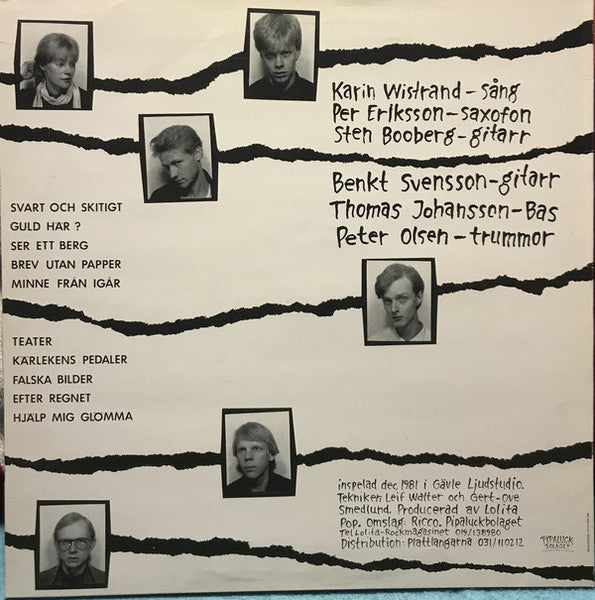 Karin Wistrand – sång
Per Eriksson – saxofon
Sten Booberg – gitarr
Benkt Svensson – gitarr
Thomas Johansson – Bas
Peter Olsen – trummor
SVART OCH SKITIGT
GULD HÄR ?
SER ETT BERG
BREV UTAN PAPPER
MINNE FRÅN IGÅR
TEATER
KÄRLEKENS PEDALER
FALSKA BILDER
EFTER REGNET
HJÄLP MIG GLÖMMA
inspelad dec 1981 i Gävle Ljudstudio.
Tekniker: Leif Walter och Gert-Ove
Smedlund. Producerad av Lolita
Pop. Omslag: Ricco. Pipaluckbolaget
Tel Lolita-Rockmagasinet 019/138980
Distribution: Plattlangarna 031/110212
PIPALUCK
BOLAGET